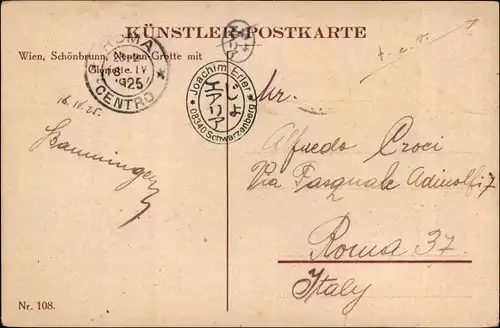 KÜNSTLER-POSTKARTE
Wien, Schönbrunn, Neptun-Grotte mit
Gloriette. IV
ROMA
1925
CENTRO
Joachim Erler
08340 Schwarzenberg
t. c. v.
16. IV. 25.
Mr.
Alfredo Croci
Via Pasquale Adinolfi 7
2
Roma 37
Italy
Nr. 108.